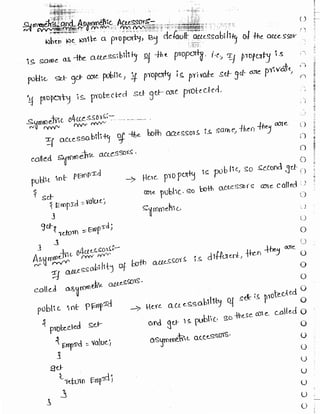 Symmetric and Asymmetric Accessors:-
When we write a property, By default accessability of the accessor
is same as the accessibility of the property. i.e., If property is
public set get are public, if property is private set get are private,
if property is protected set get are protected.
Symmetric Accessors:-
If accessability of the both accessors is same, then they are
called Symmetric accessors.
public int PEmpId → Here property is public, so second get
{ are public. so both accessors are called
set Symmetric.
{ EmpId = value;
}
get {
return = EmpId;
}
}
Asymmetric Accessors:-
If accessability of both accessors is different, then they are
called asymmetric accessors.
public int PEmpId → Here accessability of set is protected
{ and get is public. so these are called
protected set asymmetric accessors.
{ EmpId = value;
}
get
{ return EmpId;
}
}